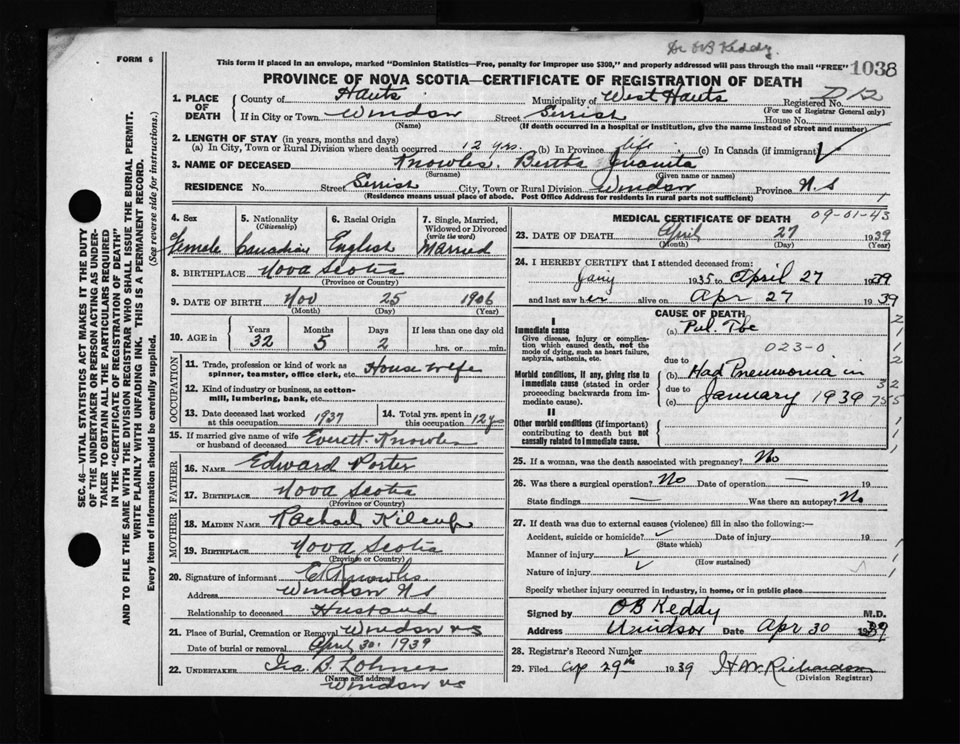 Dr OB Keddy.
FORM 6
This form if placed in an envelope, marked "Dominion Statistics—Free, penalty for improper use $300," and properly addressed will pass through the mail "FREE"
1038
PROVINCE OF NOVA SCOTIA—CERTIFICATE OF REGISTRATION OF DEATH
1. PLACE OF DEATH
County of Hants Municipality of West Hants Registered No. D12
(For use of Registrar General only)
If in City or Town Windsor Street House No.
(Name) (If death occurred in a hospital or institution, give the name instead of street and number)
2. LENGTH OF STAY (in years, months and days)
(a) In City, Town or Rural Division where death occurred 12 yrs. (b) In Province life (c) In Canada (if immigrant)
3. NAME OF DECEASED Knowles, Bertha Juanita
(Surname) (Given name or names)
RESIDENCE No. Street City, Town or Rural Division Windsor Province N S
(Residence means usual place of abode. Post Office Address for residents in rural parts not sufficient)
4. Sex
Female
5. Nationality
(Citizenship)
Canadian
6. Racial Origin
English
7. Single, Married, Widowed or Divorced
(write the word)
Married
8. BIRTHPLACE Nova Scotia
(Province or Country)
9. DATE OF BIRTH Nov 25 1906
(Month) (Day) (Year)
10. AGE in
Years Months Days If less than one day old
32 5 2 hrs. or min.
OCCUPATION
11. Trade, profession or kind of work as spinner, teamster, office clerk, etc. House wife
12. Kind of industry or business, as cotton-mill, lumbering, bank, etc.
13. Date deceased last worked at this occupation 1937
14. Total yrs. spent in this occupation 12 yrs
15. If married give name of wife or husband of deceased Everett Knowles
FATHER
16. NAME Edward Porter
17. BIRTHPLACE Nova Scotia
(Province or Country)
MOTHER
18. MAIDEN NAME Rachael Kilcup
19. BIRTHPLACE Nova Scotia
(Province or Country)
20. Signature of informant E Knowles
Address Windsor N S
Relationship to deceased Husband
21. Place of Burial, Cremation or Removal Windsor NS
Date of burial or removal April 30. 1939
22. UNDERTAKER Ira B. Lohnes
(Name and address)
Windsor NS
MEDICAL CERTIFICATE OF DEATH
09-01-43
23. DATE OF DEATH April 27 1939
(Month) (Day) (Year)
24. I HEREBY CERTIFY that I attended deceased from:
Jany 1935 to April 27 1939
and last saw her alive on Apr 27 1939
CAUSE OF DEATH
I
Immediate cause
Give disease, injury or complication which caused death, not the mode of dying, such as heart failure, asphyxia, asthenia, etc.
(a) Pul. Tbc
023-0
due to
Morbid conditions, if any, giving rise to immediate cause (stated in order proceeding backwards from immediate cause).
(b) Had Pneumonia in
due to
(c) January 1939
II
Other morbid conditions (if important) contributing to death but not causally related to immediate cause.
25. If a woman, was the death associated with pregnancy? No
26. Was there a surgical operation? No Date of operation — 19
State findings — Was there an autopsy? No
27. If death was due to external causes (violence) fill in also the following:—
Accident, suicide or homicide? Date of injury 19
(State which)
Manner of injury
(How sustained)
Nature of injury
Specify whether injury occurred in industry, in home, or in public place
Signed by OB Keddy M.D.
Address Windsor Date Apr 30 1939
28. Registrar's Record Number
29. Filed 29th 1939 Richardson
(Division Registrar)
SEC. 46—VITAL STATISTICS ACT MAKES IT THE DUTY
OF THE UNDERTAKER OR PERSON ACTING AS UNDER-
TAKER TO OBTAIN ALL THE PARTICULARS REQUIRED
IN THE "CERTIFICATE OF REGISTRATION OF DEATH"
AND TO FILE THE SAME WITH THE DIVISION REGISTRAR WHO SHALL ISSUE THE BURIAL PERMIT.
WRITE PLAINLY WITH UNFADING INK. THIS IS A PERMANENT RECORD.
Every item of information should be carefully supplied. (See reverse side for instructions.)